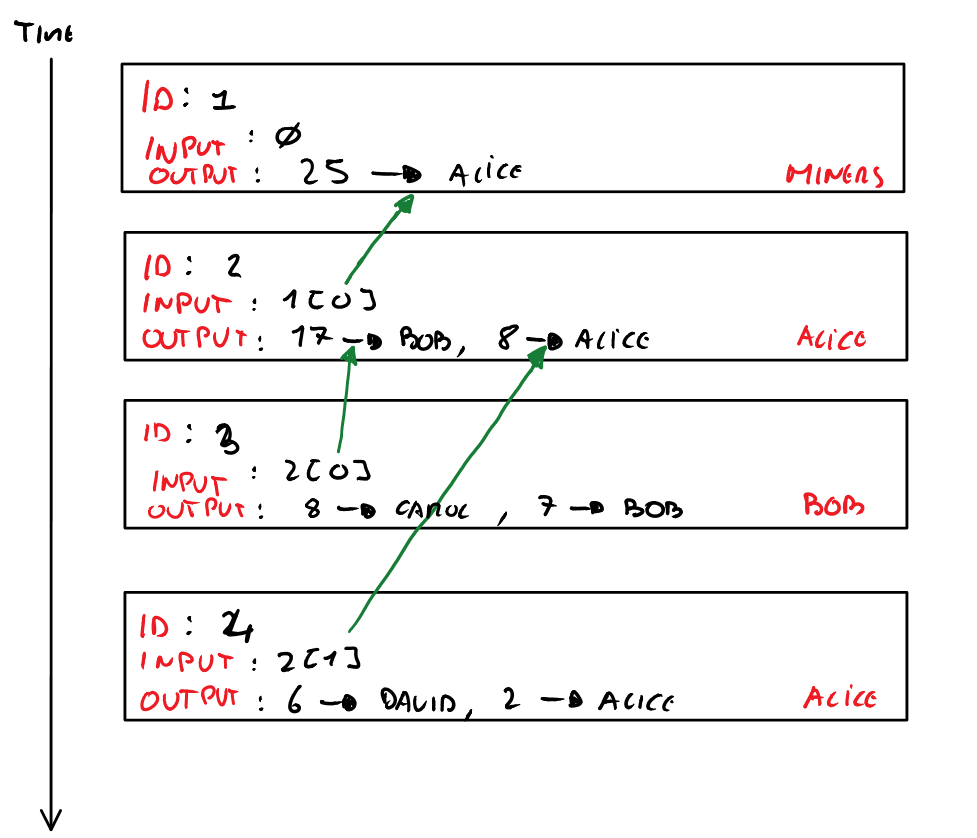 TIME
ID: 1
INPUT : Ø
OUTPUT : 25 → ALICE MINERS
ID: 2
INPUT : 1[0]
OUTPUT : 17 → BOB, 8 → ALICE ALICE
ID: 3
INPUT : 2[0]
OUTPUT : 8 → CAROL , 7 → BOB BOB
ID: 4
INPUT : 2[1]
OUTPUT : 6 → DAVID, 2 → ALICE ALICE